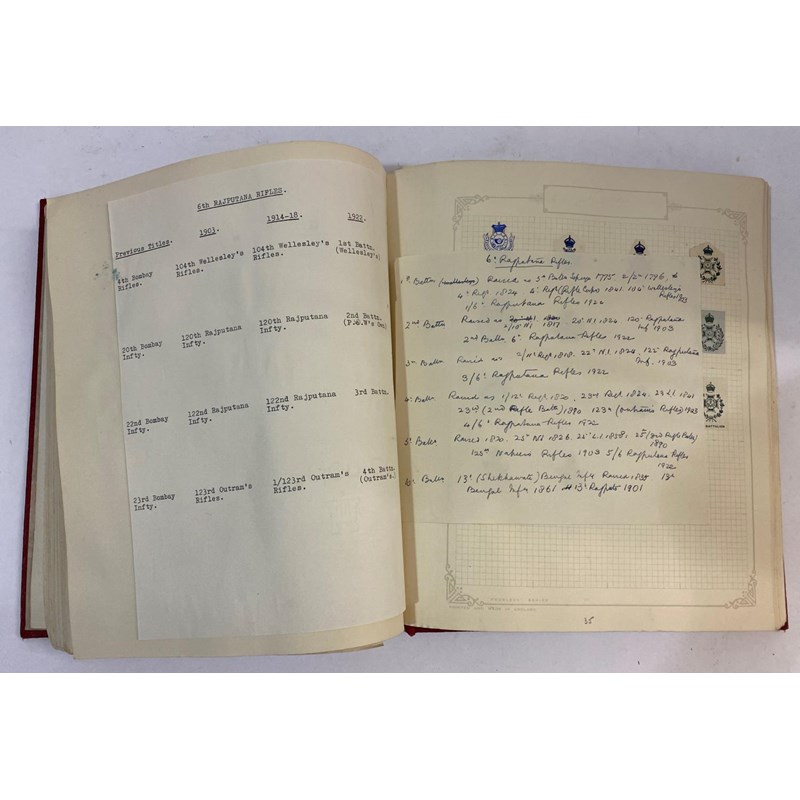 6th RAJPUTANA RIFLES.
Previous Titles. 1903. 1914-18. 1922.
4th Bombay Rifles. 104th Wellesley's Rifles. 104th Wellesley's Rifles. 1st Battn. (Wellesley's)
20th Bombay Infty. 120th Rajputana Infty. 120th Rajputana Infty. 2nd Battn.
22nd Bombay Infty. 122nd Rajputana Infty. 122nd Rajputana Infty. 3rd Battn.
23rd Bombay Infty. 123rd Outram's Rifles. 1/123rd Outram's Rifles. 4th Battn. (Outram's.)
6th Rajputana Rifles
1st Battn (Wellesleys) Raised as 5th Batln Sepoys 1775. 2/5th 1796, &
4th Regt 1824 4th Regt (Rifle Corps) 1841. 104th Wellesleys Rifles 1903
1/6th Rajputana Rifles 1922
2nd Battn Raised as 1817. 20th N.I. 1824 120th Rajputana Inf. 1903
2nd Battn. 6th Rajputana Rifles 1922
3rd Battn Raised as 1818. 22nd N.I. 1824. 122nd Rajputana Inf. 1903
3/6th Rajputana Rifles 1922
4th Battn. Raised as 1/12th Regt 1820. 23rd Regt 1824. 23rd L.I. 1841
23rd (2nd Rifle Battn) 1890 123rd (Outrams Rifles) 1903
4/6th Rajputana Rifles 1922
5th Battn Raised 1820. 25th N.I. 1826. 25th L.I. 1858. 25th (3rd Rifle Battn) 1890
125th Napiers Rifles 1903 5/6 Rajputana Rifles 1922
Battn 13th (Shekhawati) Bengal Infy. Raised 1835 13th
Bengal Infy 1861 13th Rajputs 1901
35